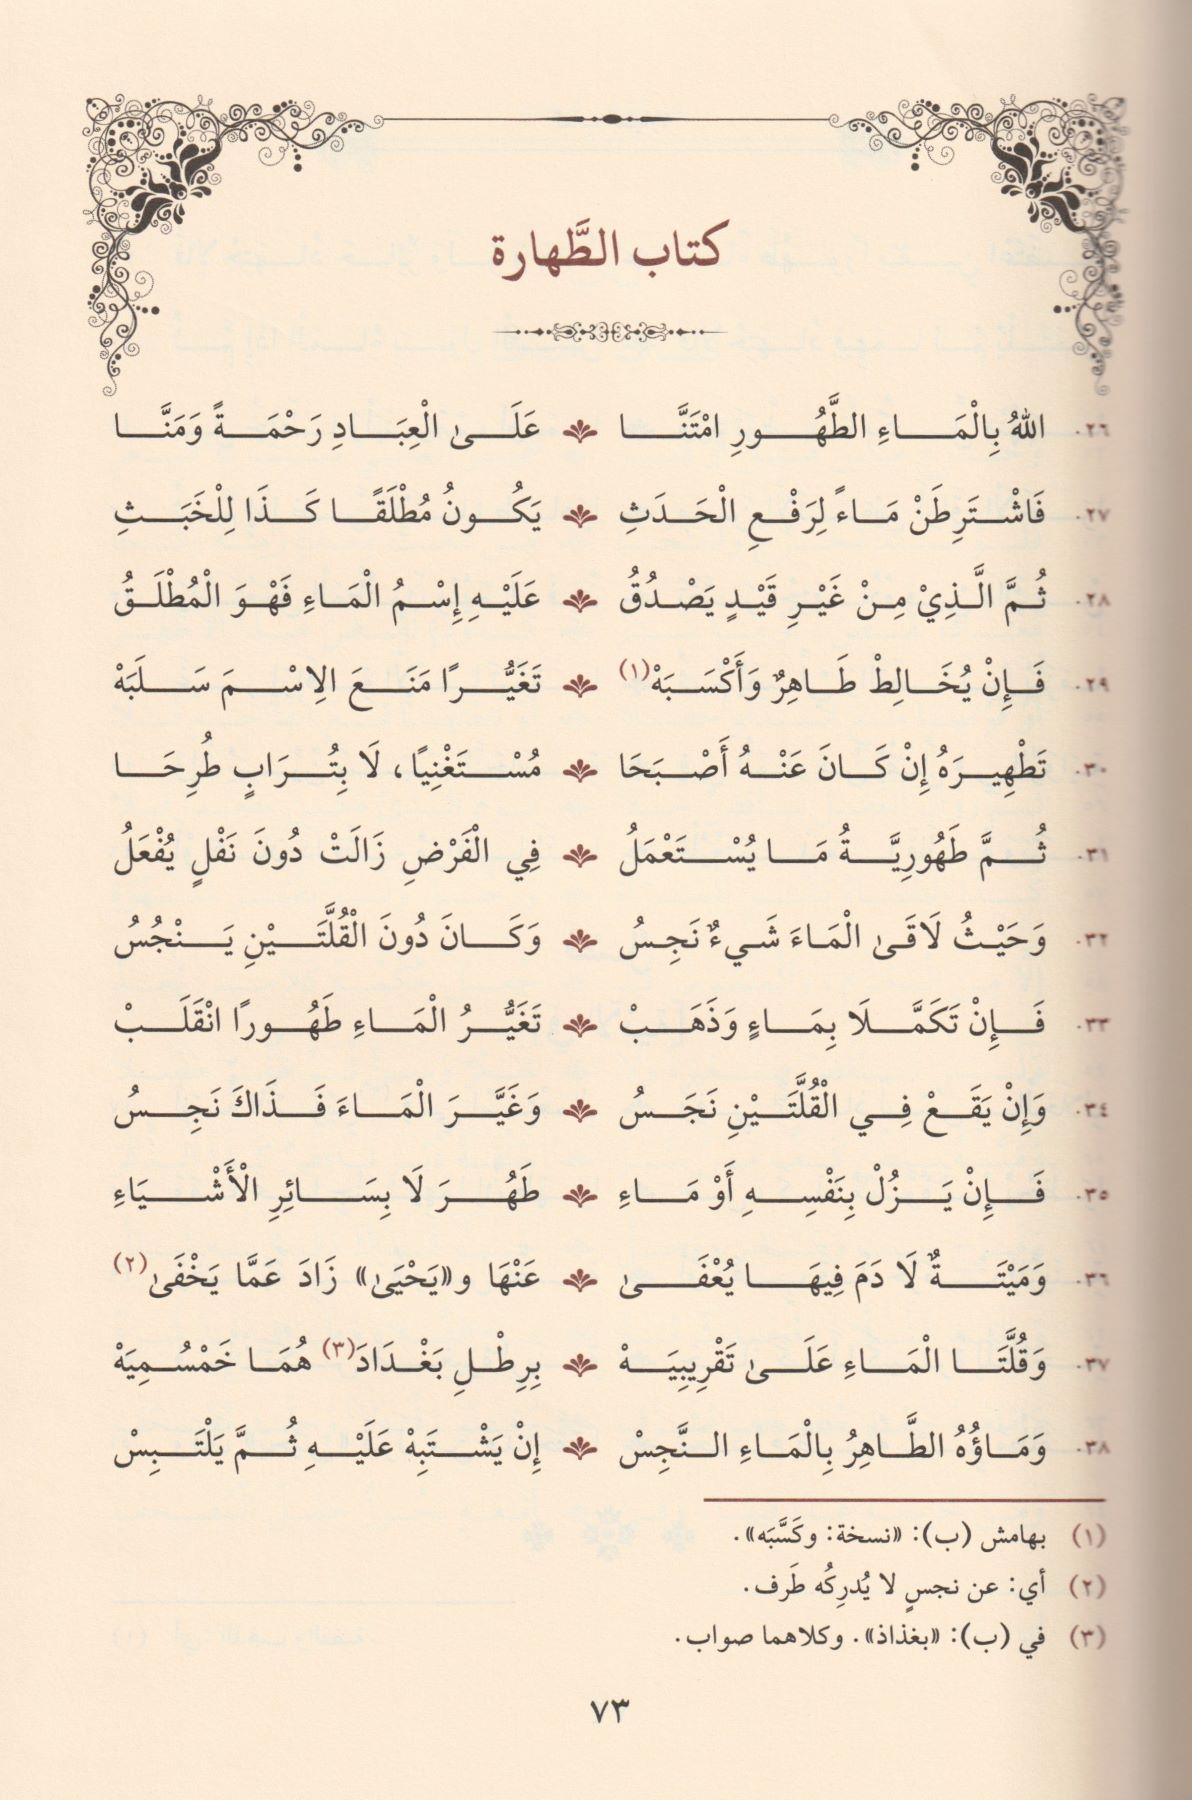 كتاب الطَّهارة
٢٦. اللهُ بِالْمَاءِ الطَّهُورِ امْتَنَّا عَلَى الْعِبَادِ رَحْمَةً وَمَنَّا
٢٧. فَاشْتَرِطَنْ مَاءً لِرَفْعِ الْحَدَثِ يَكُونُ مُطْلَقًا كَذَا لِلْخَبَثِ
٢٨. ثُمَّ الَّذِيْ مِنْ غَيْرِ قَيْدٍ يَصْدُقُ عَلَيْهِ إِسْمُ الْمَاءِ فَهْوَ الْمُطْلَقُ
٢٩. فَإِنْ يُخَالِطْ طَاهِرٌ وَأَكْسَبَهْ(١) تَغَيُّرًا مَنَعَ الِاسْمَ سَلَبَهْ
٣٠. تَطْهِيرَهُ إِنْ كَانَ عَنْهُ أَصْبَحَا مُسْتَغْنِيًا، لَا بِتُرَابٍ طُرِحَا
٣١. ثُمَّ طَهُورِيَّةُ مَا يُسْتَعْمَلُ فِي الْفَرْضِ زَالَتْ دُونَ نَفْلٍ يُفْعَلُ
٣٢. وَحَيْثُ لَاقَى الْمَاءَ شَيءٌ نَجِسُ وَكَانَ دُونَ الْقُلَّتَيْنِ يَنْجُسُ
٣٣. فَإِنْ تَكَمَّلَا بِمَاءٍ وَذَهَبْ تَغَيُّرُ الْمَاءِ طَهُورًا انْقَلَبْ
٣٤. وَإِنْ يَقَعْ فِي الْقُلَّتَيْنِ نَجَسُ وَغَيَّرَ الْمَاءَ فَذَاكَ نَجِسُ
٣٥. فَإِنْ يَزُلْ بِنَفْسِهِ أَوْ مَاءِ طَهُرَ لَا بِسَائِرِ الْأَشْيَاءِ
٣٦. وَمَيْتَةٌ لَا دَمَ فِيهَا يُعْفَى عَنْهَا و«يَحْيَى» زَادَ عَمَّا يَخْفَى(٢)
٣٧. وَقُلَّتَا الْمَاءِ عَلَى تَقْرِيبِيَهْ بِرِطْلِ بَغْدَادَ(٣) هُمَا خَمْسُمِيَهْ
٣٨. وَمَاؤُهُ الطَّاهِرُ بِالْمَاءِ النَّجِسْ إِنْ يَشْتَبِهْ عَلَيْهِ ثُمَّ يَلْتَبِسْ
(١) بهامش (ب): «نسخة: وكَسَّبَه».
(٢) أي: عن نجسٍ لا يُدرِكُه طَرف.
(٣) في (ب): «بغذاذ». وكلاهما صواب.
٧٣